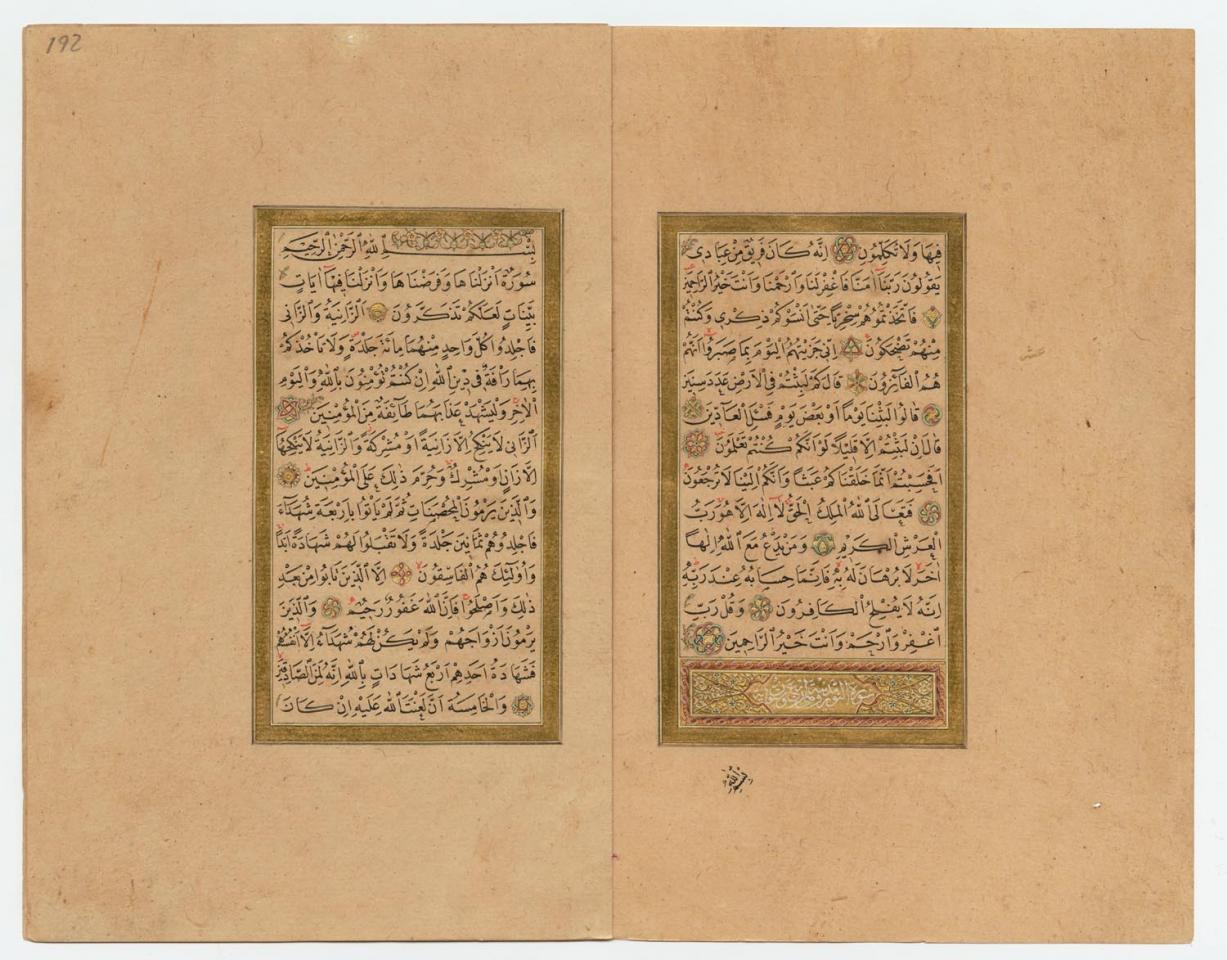 فِيهَا وَلَا تُكَلِّمُونِ اِنَّهُ كَانَ فَرِيقٌ مِنْ عِبَادِى
يَقُولُونَ رَبَّنَا اٰمَنَّا فَاغْفِرْ لَنَا وَارْحَمْنَا وَاَنْتَ خَيْرُ الرَّاحِمِينَ
فَاتَّخَذْتُمُوهُمْ سِخْرِيًّا حَتّٰى اَنْسَوْكُمْ ذِكْرِى وَكُنْتُمْ
مِنْهُمْ تَضْحَكُونَ اِنِّى جَزَيْتُهُمُ الْيَوْمَ بِمَا صَبَرُوا اَنَّهُمْ
هُمُ الْفَائِزُونَ قَالَ كَمْ لَبِثْتُمْ فِى الْاَرْضِ عَدَدَ سِنِينَ
قَالُوا لَبِثْنَا يَوْمًا اَوْ بَعْضَ يَوْمٍ فَسْئَلِ الْعَادِّينَ
قَالَ اِنْ لَبِثْتُمْ اِلَّا قَلِيلًا لَوْ اَنَّكُمْ كُنْتُمْ تَعْلَمُونَ
اَفَحَسِبْتُمْ اَنَّمَا خَلَقْنَاكُمْ عَبَثًا وَاَنَّكُمْ اِلَيْنَا لَا تُرْجَعُونَ
فَتَعَالَى اللّٰهُ الْمَلِكُ الْحَقُّ لَا اِلٰهَ اِلَّا هُوَ رَبُّ
الْعَرْشِ الْكَرِيمِ وَمَنْ يَدْعُ مَعَ اللّٰهِ اِلٰهًا
اٰخَرَ لَا بُرْهَانَ لَهُ بِهِ فَاِنَّمَا حِسَابُهُ عِنْدَ رَبِّهِ
اِنَّهُ لَا يُفْلِحُ الْكَافِرُونَ وَقُلْ رَبِّ
اغْفِرْ وَارْحَمْ وَاَنْتَ خَيْرُ الرَّاحِمِينَ
سورة النور
بِسْمِ اللّٰهِ
192
بِسْمِ اللّٰهِ الرَّحْمٰنِ الرَّحِيمِ
سُورَةٌ اَنْزَلْنَاهَا وَفَرَضْنَاهَا وَاَنْزَلْنَا فِيهَا اٰيَاتٍ
بَيِّنَاتٍ لَعَلَّكُمْ تَذَكَّرُونَ اَلزَّانِيَةُ وَالزَّانِى
فَاجْلِدُوا كُلَّ وَاحِدٍ مِنْهُمَا مِائَةَ جَلْدَةٍ وَلَا تَأْخُذْكُمْ
بِهِمَا رَأْفَةٌ فِى دِينِ اللّٰهِ اِنْ كُنْتُمْ تُؤْمِنُونَ بِاللّٰهِ وَالْيَوْمِ
الْاٰخِرِ وَلْيَشْهَدْ عَذَابَهُمَا طَائِفَةٌ مِنَ الْمُؤْمِنِينَ
اَلزَّانِى لَا يَنْكِحُ اِلَّا زَانِيَةً اَوْ مُشْرِكَةً وَالزَّانِيَةُ لَا يَنْكِحُهَا
اِلَّا زَانٍ اَوْ مُشْرِكٌ وَحُرِّمَ ذٰلِكَ عَلَى الْمُؤْمِنِينَ
وَالَّذِينَ يَرْمُونَ الْمُحْصَنَاتِ ثُمَّ لَمْ يَأْتُوا بِاَرْبَعَةِ شُهَدَاءَ
فَاجْلِدُوهُمْ ثَمَانِينَ جَلْدَةً وَلَا تَقْبَلُوا لَهُمْ شَهَادَةً اَبَدًا
وَاُولٰئِكَ هُمُ الْفَاسِقُونَ اِلَّا الَّذِينَ تَابُوا مِنْ بَعْدِ
ذٰلِكَ وَاَصْلَحُوا فَاِنَّ اللّٰهَ غَفُورٌ رَحِيمٌ وَالَّذِينَ
يَرْمُونَ اَزْوَاجَهُمْ وَلَمْ يَكُنْ لَهُمْ شُهَدَاءُ اِلَّا اَنْفُسُهُمْ
فَشَهَادَةُ اَحَدِهِمْ اَرْبَعُ شَهَادَاتٍ بِاللّٰهِ اِنَّهُ لَمِنَ الصَّادِقِينَ
وَالْخَامِسَةُ اَنَّ لَعْنَتَ اللّٰهِ عَلَيْهِ اِنْ كَانَ